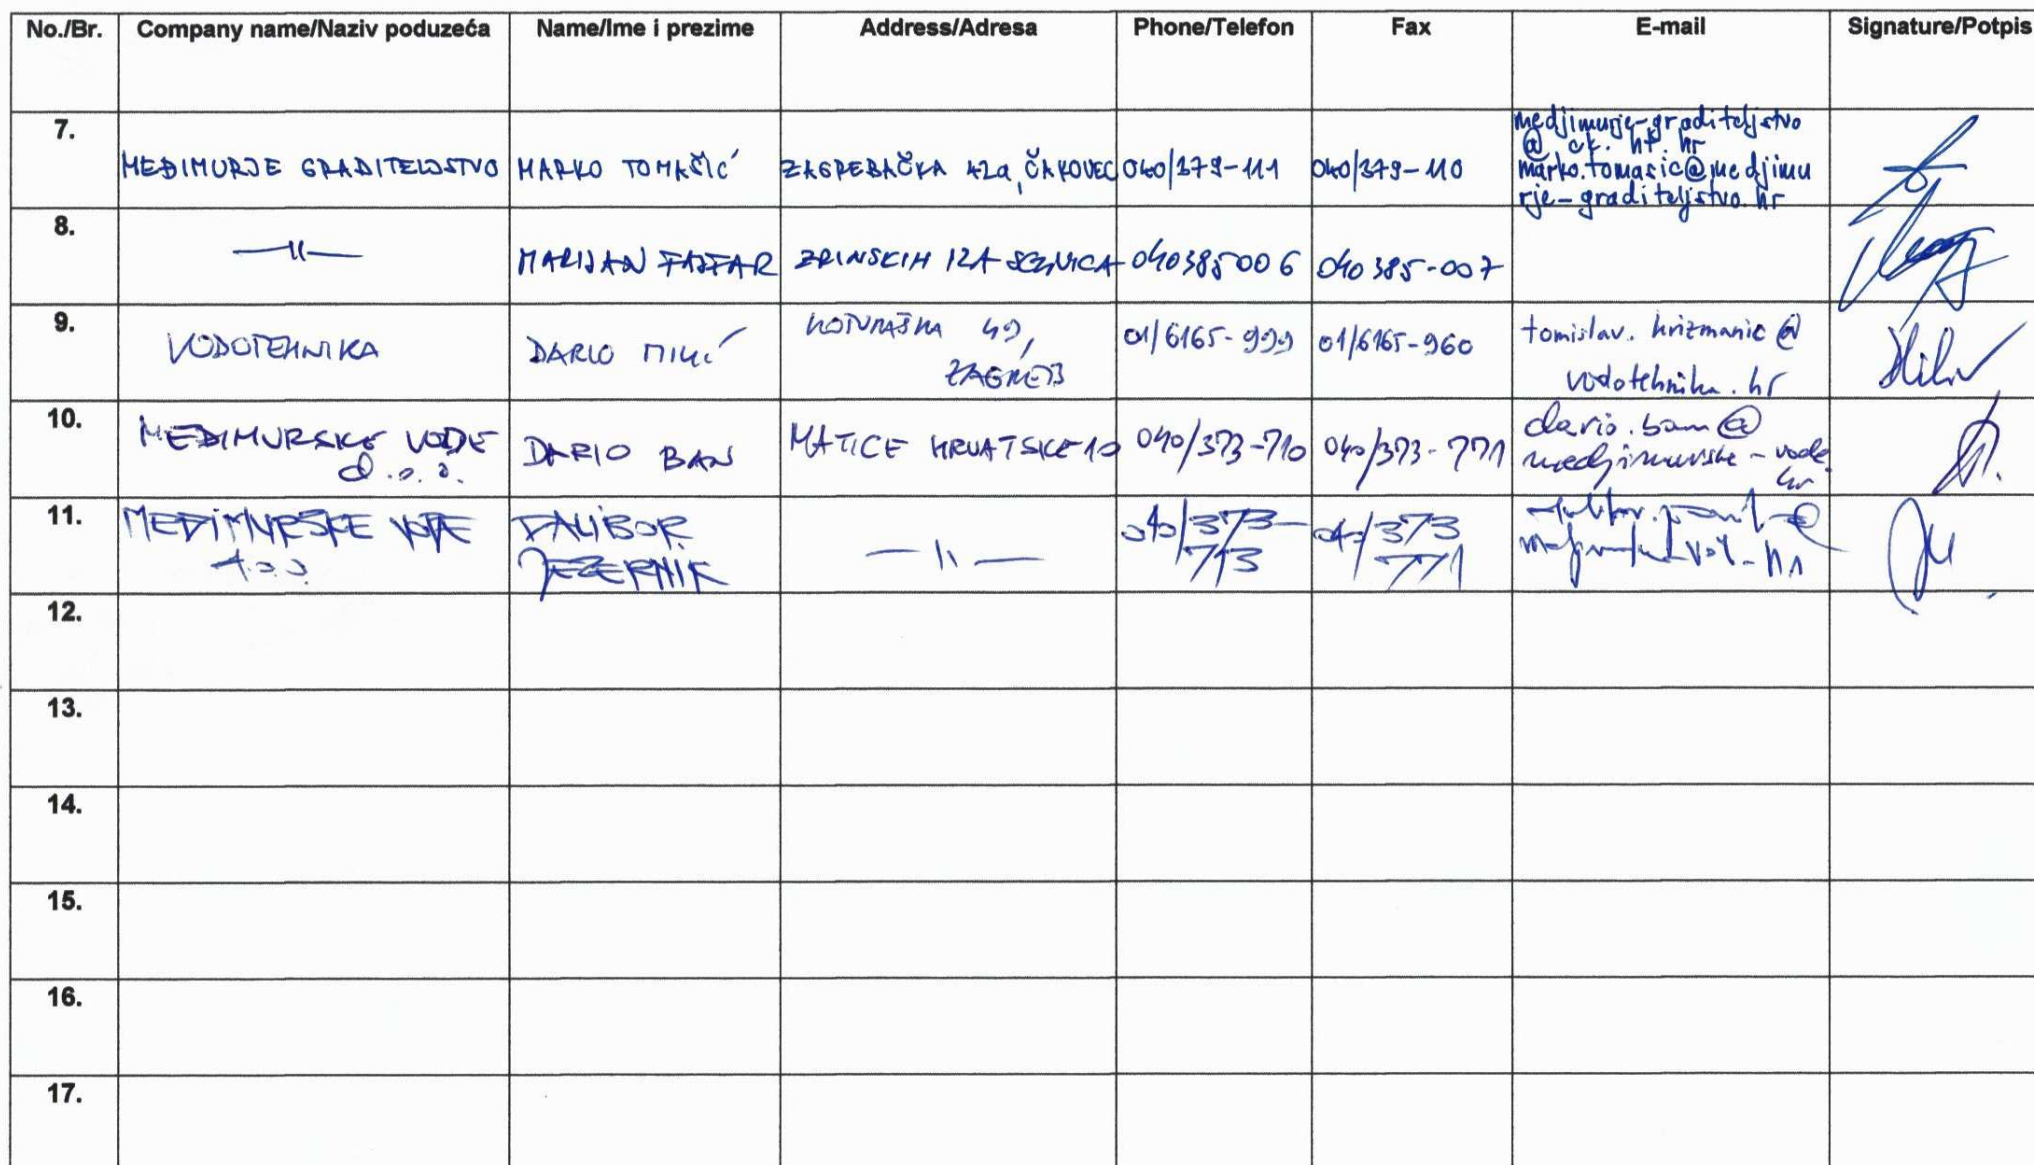 No./Br. Company name/Naziv poduzeća Name/Ime i prezime Address/Adresa Phone/Telefon Fax E-mail Signature/Potpis
7.
MEĐIMURJE GRADITELJSTVO MARKO TOMAŠIĆ ZAGREBAČKA 42a, ČAKOVEC 040/379-111 040/379-110
medjimurje-graditeljstvo
@ck.ht.hr
marko.tomasic@medjimu
rje-graditeljstvo.hr
8.
—"— MARIJAN ZRINSKIH 040385006 040 385-007
9.
VODOTEHNIKA DARIO KOTURAŠKA 49,
ZAGREB
01/6165-999 01/6165-960
tomislav.krizmanic@
vodotehnika.hr
10.
MEĐIMURSKE VODE
d.o.o.
DARIO BAN MATICE HRVATSKE 10 040/373-710 040/373-771
dario.ban@
medjimurske-vode.
hr
11.
MEĐIMURSKE VODE
d.o.o.
DALIBOR
JEZERNIK
—"—
040/373-
713
040/373
771
12.
13.
14.
15.
16.
17.